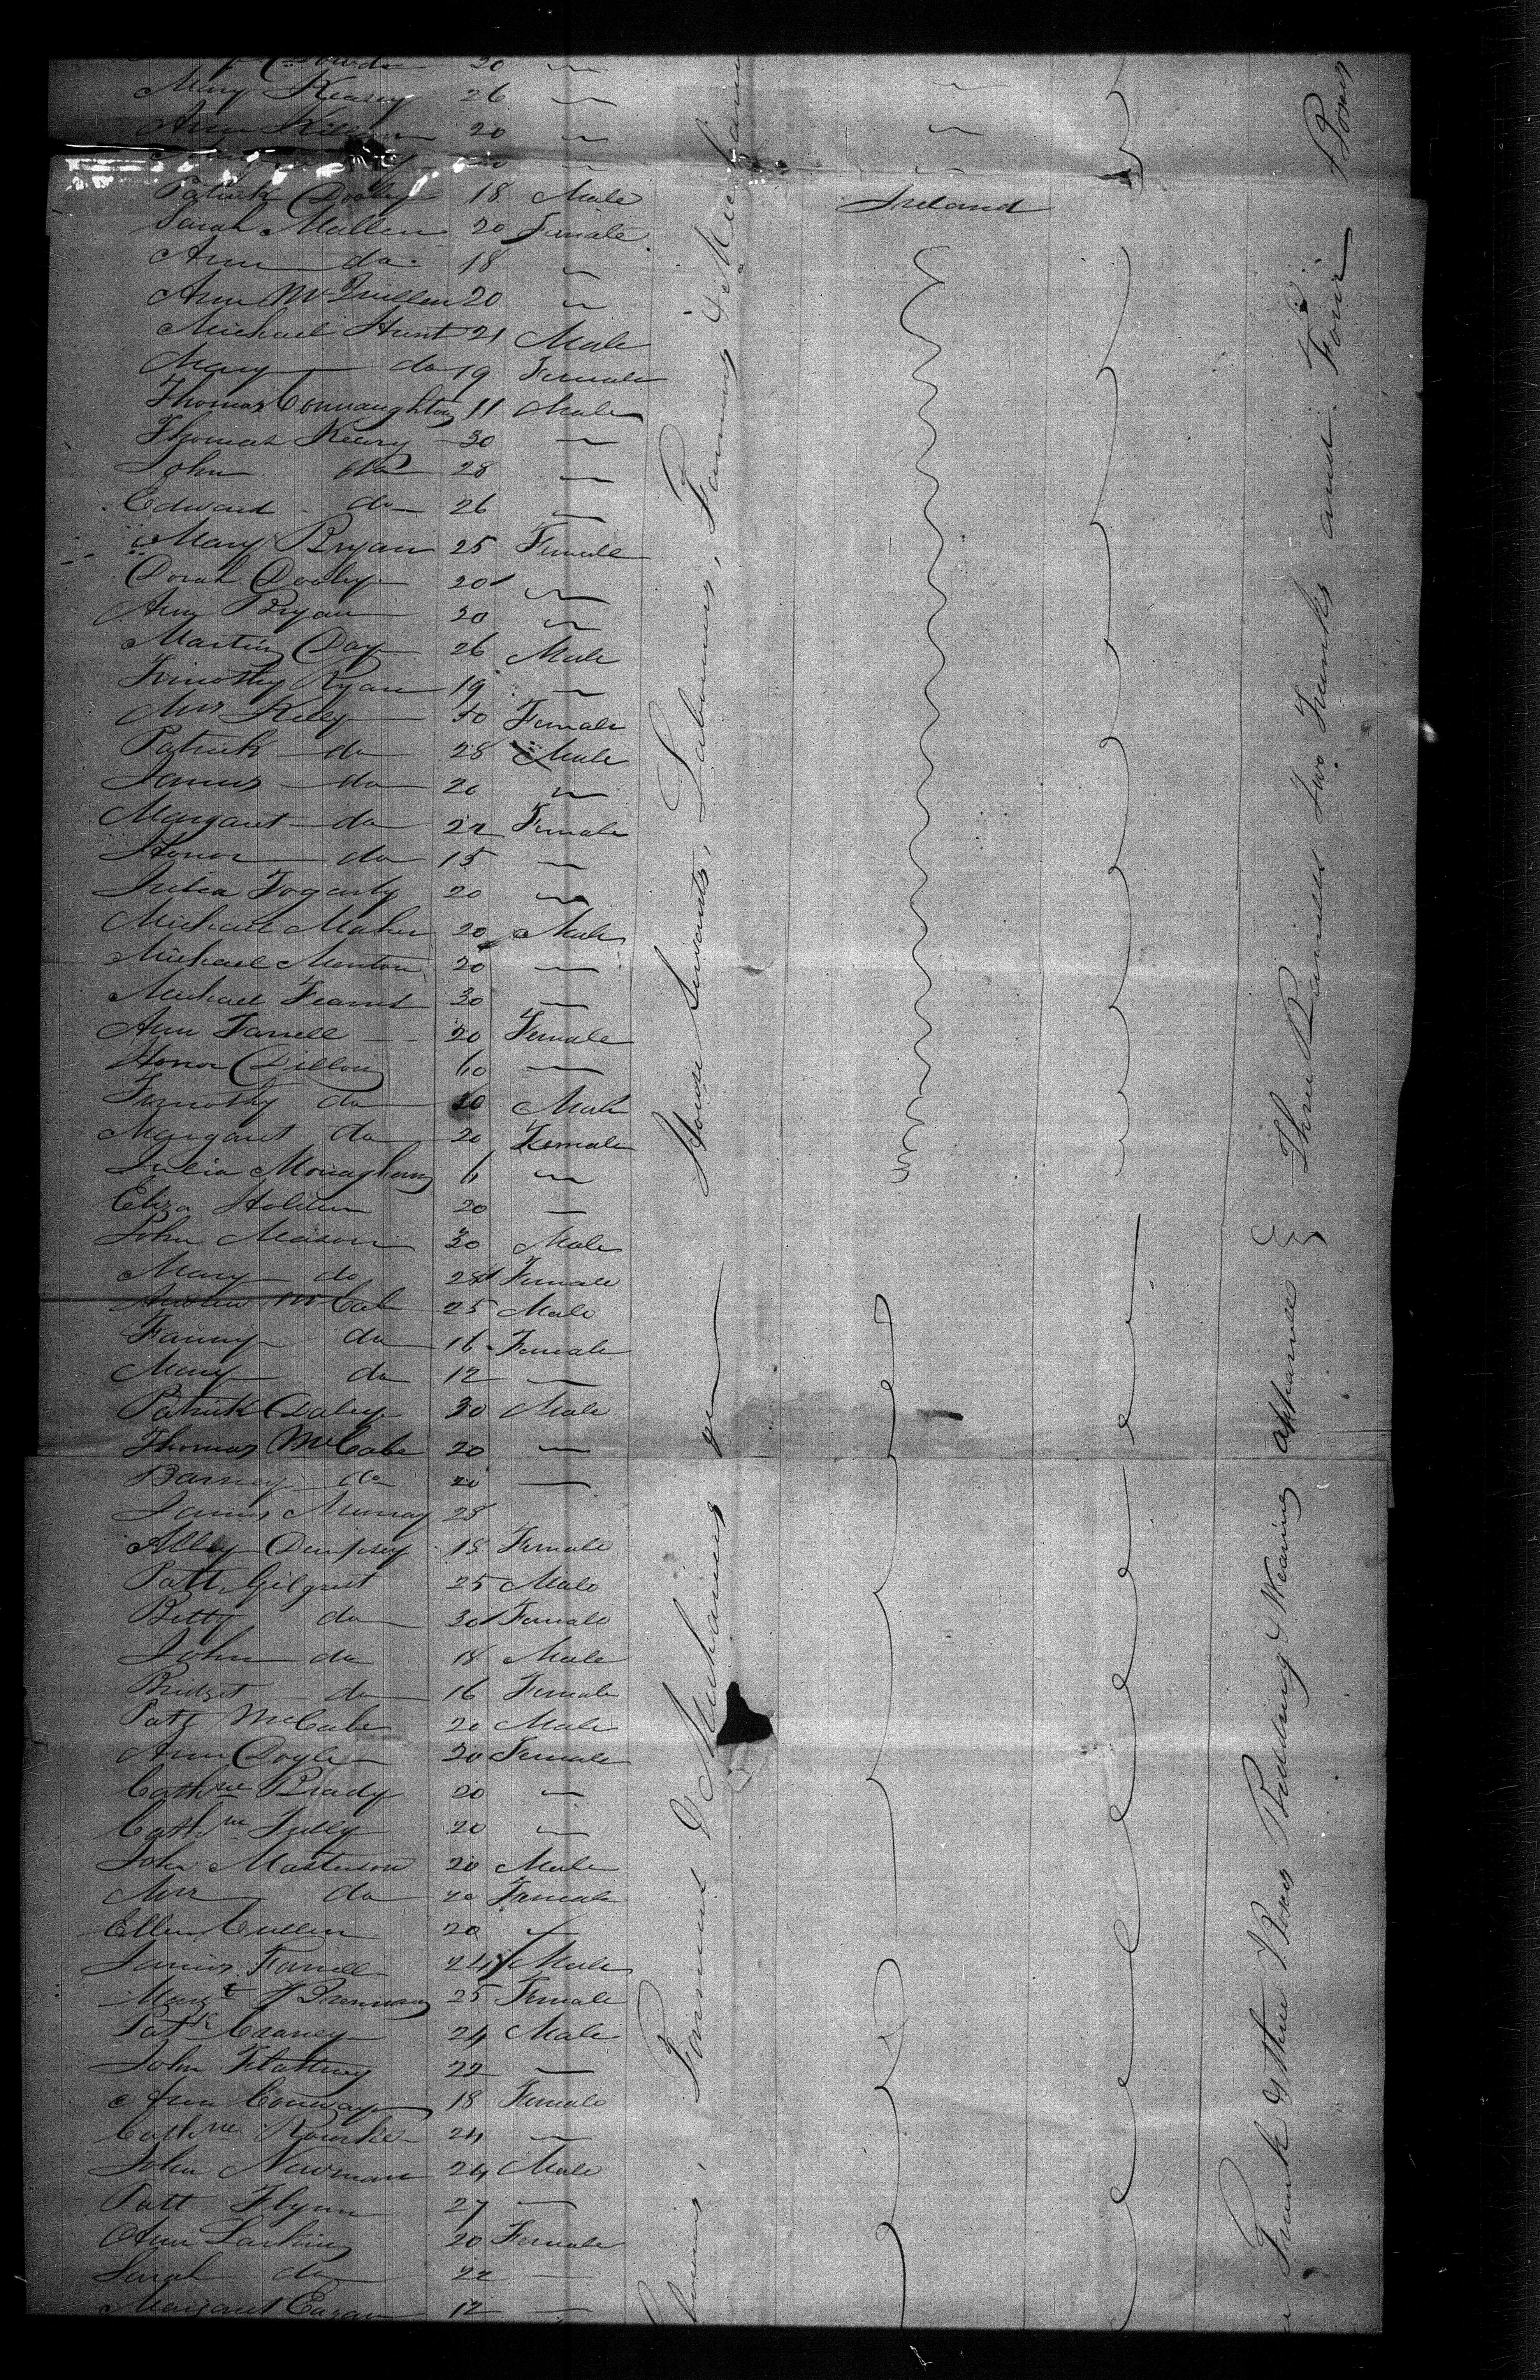 20 〃
Mary Keary 26 〃
Ann 20 〃
Patrick Dooley 18 Male Ireland
Sarah Mullen 20 Female
Ann do 18 〃
Ann McQuillen 20 〃
Michael Hunt 21 Male
Mary do 19 Female
Thomas Connaughton 11 Male
Thomas Keary 30 〃
John do 28 〃
Edward do 26 〃
Mary Bryan 25 Female
Dorah Dooley 20 〃
Ann Bryan 20 〃
Martin Day 26 Male
Timothy Ryan 19 〃
Mrs Kelly 50 Female
Patrick do 28 Male
James do 26 〃
Margaret do 22 Female
Honor do 15 〃
Julia Fogarty 20 〃
Michael Maher 20 Male
Michael Menton 20 〃
Michael 30 〃
Ann Farrell 20 Female
Honor Dillon 60 〃
Timothy do Male
Margaret do 20 Female
Julia Monaghan 〃
Eliza Holden 20 〃
John Mason 30 Male
Mary do 28 Female
Andrew McCabe 25 Male
Fanny do 16 Female
Mary do 12 〃
Patrick Daley 30 Male
Thomas McCabe 20 〃
Barney do 20 〃
James Murray 28
Alley Dempsey 18 Female
Patt Gilgrist 25 Male
Betty do 30 Female
John do 18 Male
Bridget do 16 Female
Patt McCabe 20 Male
Ann Doyle 20 Female
Cathne Brady 20 〃
Cathne Tully 20 〃
John Masterson 20 Male
Mrs do 20 Female
Ellen Cullen 20 〃
James Farrell 24 Male
Margt Brennan 25 Female
Patk Craney 24 Male
John Flattery 22 〃
Ann Conway 18 Female
Cathne Rourke 24 〃
John Newman 24 Male
Patt Flynn 27 〃
Ann Larkin 20 Female
Sarah do 22 〃
Margaret Eagan 12 〃
Farmers & Mechanics
House Servants, Labourers, Farmers & Mechanics
Trunk & three Boxes Bedding & Wearing apparell
Three Barrells Two Trunks and Four Boxes